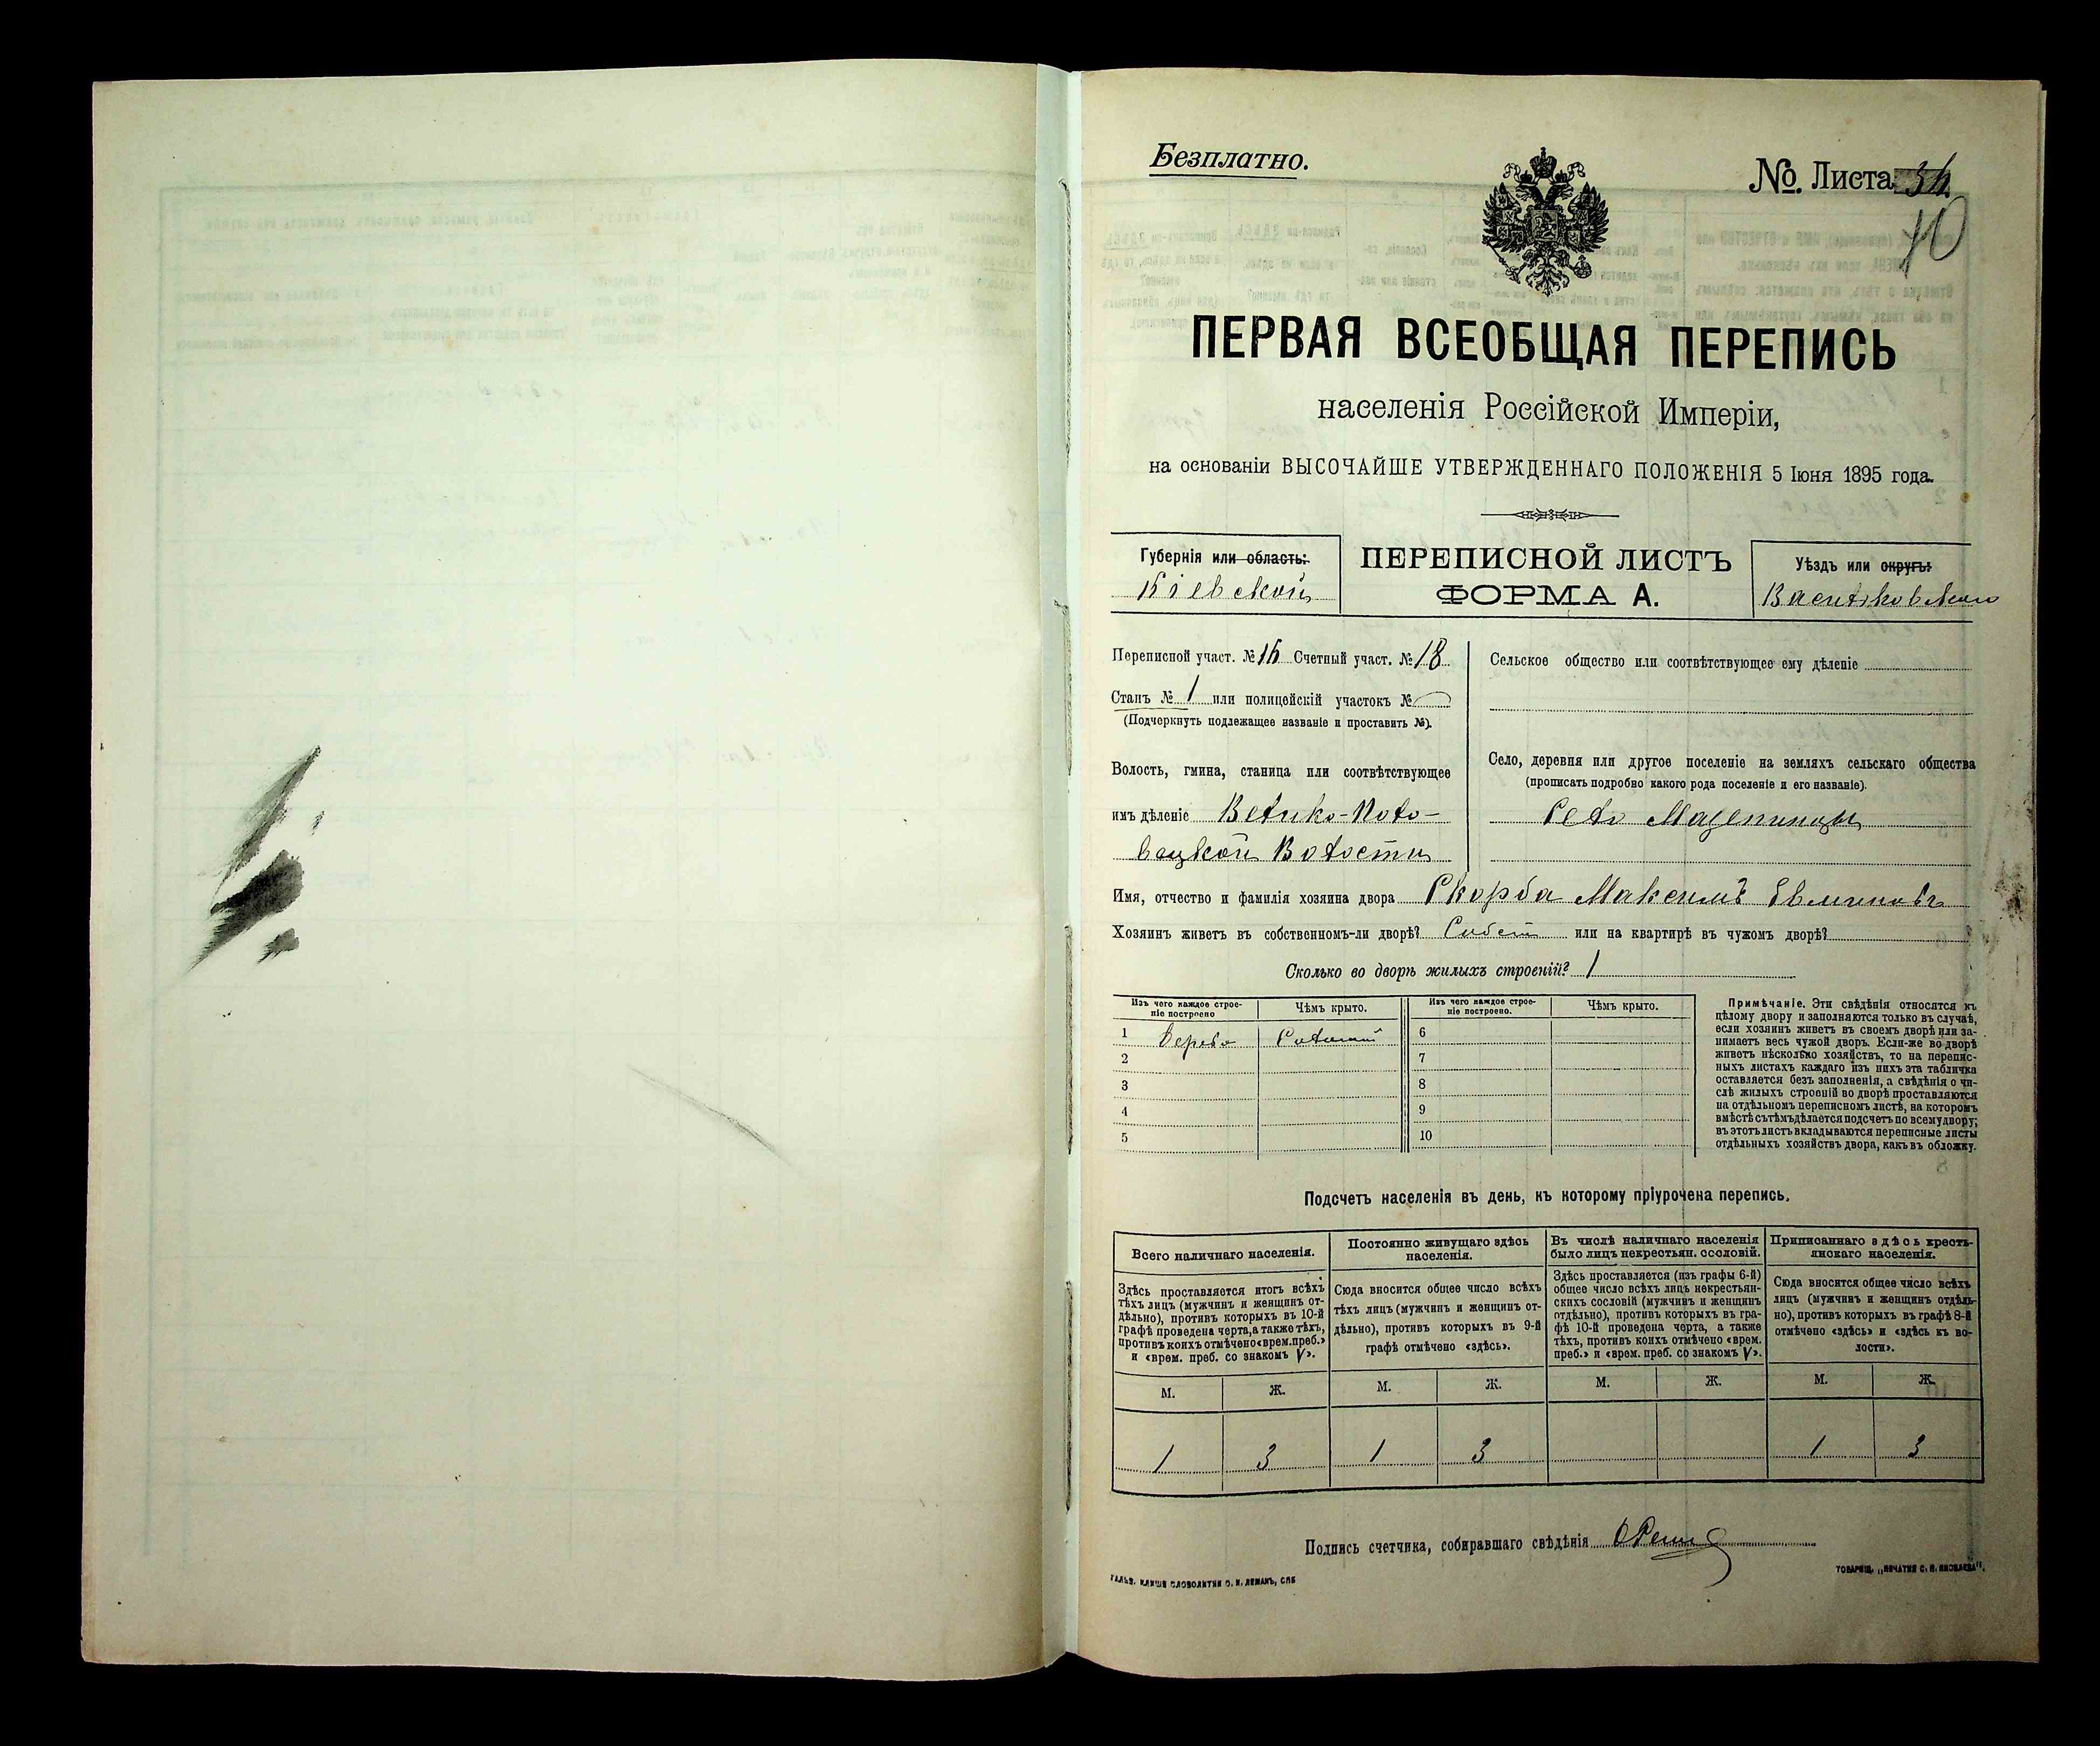 Безплатно.
№. Листа
40
ПЕРВАЯ ВСЕОБЩАЯ ПЕРЕПИСЬ
населенія Россійской Имперіи,
на основаніи ВЫСОЧАЙШЕ УТВЕРЖДЕННАГО ПОЛОЖЕНІЯ 5 Іюня 1895 года.
Губернія или область:
Кіевской
ПЕРЕПИСНОЙ ЛИСТЪ
ФОРМА А.
Уѣздъ или округъ:
Васильковскаго
Переписной участ. № 16 Счетный участ. № 18
Станъ № 1 или полицейскій участокъ №
(Подчеркнуть подлежащее названіе и проставить №).
Волость, гмина, станица или соотвѣтствующее
имъ дѣленіе Велико-Поло-
вецкой Волости
Сельское общество или соотвѣтствующее ему дѣленіе
Село, деревня или другое поселеніе на земляхъ сельскаго общества
(прописать подробно какого рода поселеніе и его названіе).
Село Мазепинцы
Имя, отчество и фамилія хозяина двора Скорба Максимъ
Хозяинъ живетъ въ собственномъ-ли дворѣ? Собст или на квартирѣ въ чужомъ дворѣ?
Сколько во дворѣ жилыхъ строеній? 1
Изъ чего каждое строе-
ніе построено
Чѣмъ крыто.
Изъ чего каждое строе-
ніе построено.
Чѣмъ крыто.
1 Дерево Соломой 6
2 7
3 8
4 9
5 10
Примѣчаніе. Эти свѣдѣнія относятся къ
цѣлому двору и заполняются только въ случаѣ,
если хозяинъ живетъ въ своемъ дворѣ или за-
нимаетъ весь чужой дворъ. Если-же во дворѣ
живетъ нѣсколько хозяйствъ, то на перепис-
ныхъ листахъ каждаго изъ нихъ эта табличка
оставляется безъ заполненія, а свѣдѣнія о чи-
слѣ жилыхъ строеній во дворѣ проставляются
на отдѣльномъ переписномъ листѣ, на которомъ
вмѣстѣ съ тѣмъ дѣлается подсчетъ по всему двору;
въ этотъ листъ вкладываются переписные листы
отдѣльныхъ хозяйствъ двора, какъ въ обложку.
Подсчетъ населенія въ день, къ которому пріурочена перепись.
Всего наличнаго населенія.
Здѣсь проставляется итогъ всѣхъ
тѣхъ лицъ (мужчинъ и женщинъ от-
дѣльно), противъ которыхъ въ 10-й
графѣ проведена черта, а также тѣхъ,
противъ коихъ отмѣчено «врем. преб.»
и «врем. преб. со знакомъ V».
Постоянно живущаго здѣсь
населенія.
Сюда вносится общее число всѣхъ
тѣхъ лицъ (мужчинъ и женщинъ от-
дѣльно), противъ которыхъ въ 9-й
графѣ отмѣчено «здѣсь».
Въ числѣ наличнаго населенія
было лицъ некрестьян. сословій.
Здѣсь проставляется (изъ графы 6-й)
общее число всѣхъ лицъ некрестьян-
скихъ сословій (мужчинъ и женщинъ
отдѣльно), противъ которыхъ въ гра-
фѣ 10-й проведена черта, а также
тѣхъ, противъ коихъ отмѣчено «врем.
преб.» и «врем. преб. со знакомъ V».
Приписаннаго здѣсь кресть-
янскаго населенія.
Сюда вносится общее число всѣхъ
лицъ (мужчинъ и женщинъ отдѣль-
но), противъ которыхъ въ графѣ 8-й
отмѣчено «здѣсь» и «здѣсь къ во-
лости».
М. Ж. М. Ж. М. Ж. М. Ж.
1 3 1 3 1 3
Подпись счетчика, собиравшаго свѣдѣнія
ГАЛЬВ. КЛИШЕ СЛОВОЛИТНИ О. И. ЛЕМАНЪ, СПБ
ТОВАРИЩ. „ПЕЧАТНЯ С. П. ЯКОВЛЕВА".